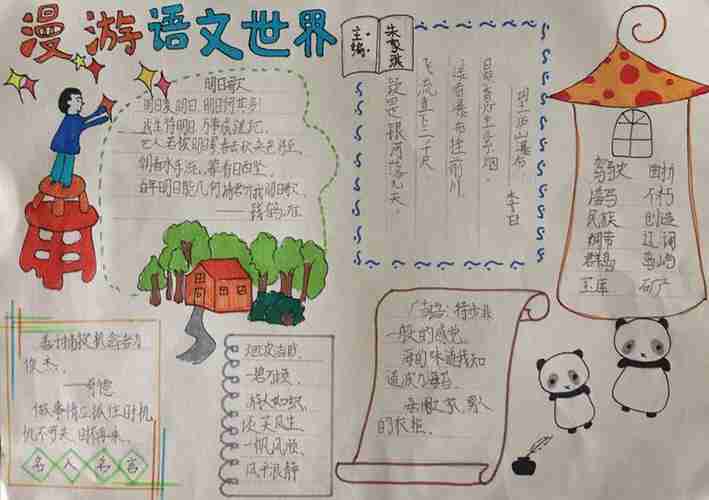 漫游语文世界
主编
朱家琪
明日歌
明日复明日,明日何其多!
我生待明日,万事成蹉跎。
世人若被明日累,春去秋来老将至。
朝看水东流,暮看日西坠。
百年明日能几何?请君听我明日歌。
——钱鹤滩
望庐山瀑布
李白
日照香炉生紫烟,
遥看瀑布挂前川。
飞流直下三千尺,
疑是银河落九天。
驾驶
不朽
民族 创造
绸带 辽阔
群岛 岛屿
宝库 矿产
善于捕捉机会者为
俊杰。
——歌德
做事情应抓住时机
机不可失,时不再来。
名人名言
一碧万顷
游人如织
谈笑风生
一帆风顺
风平浪静
广告语:特步 非
一般的感觉。
海的味道我知
道波力海苔。
男人
的衣柜。